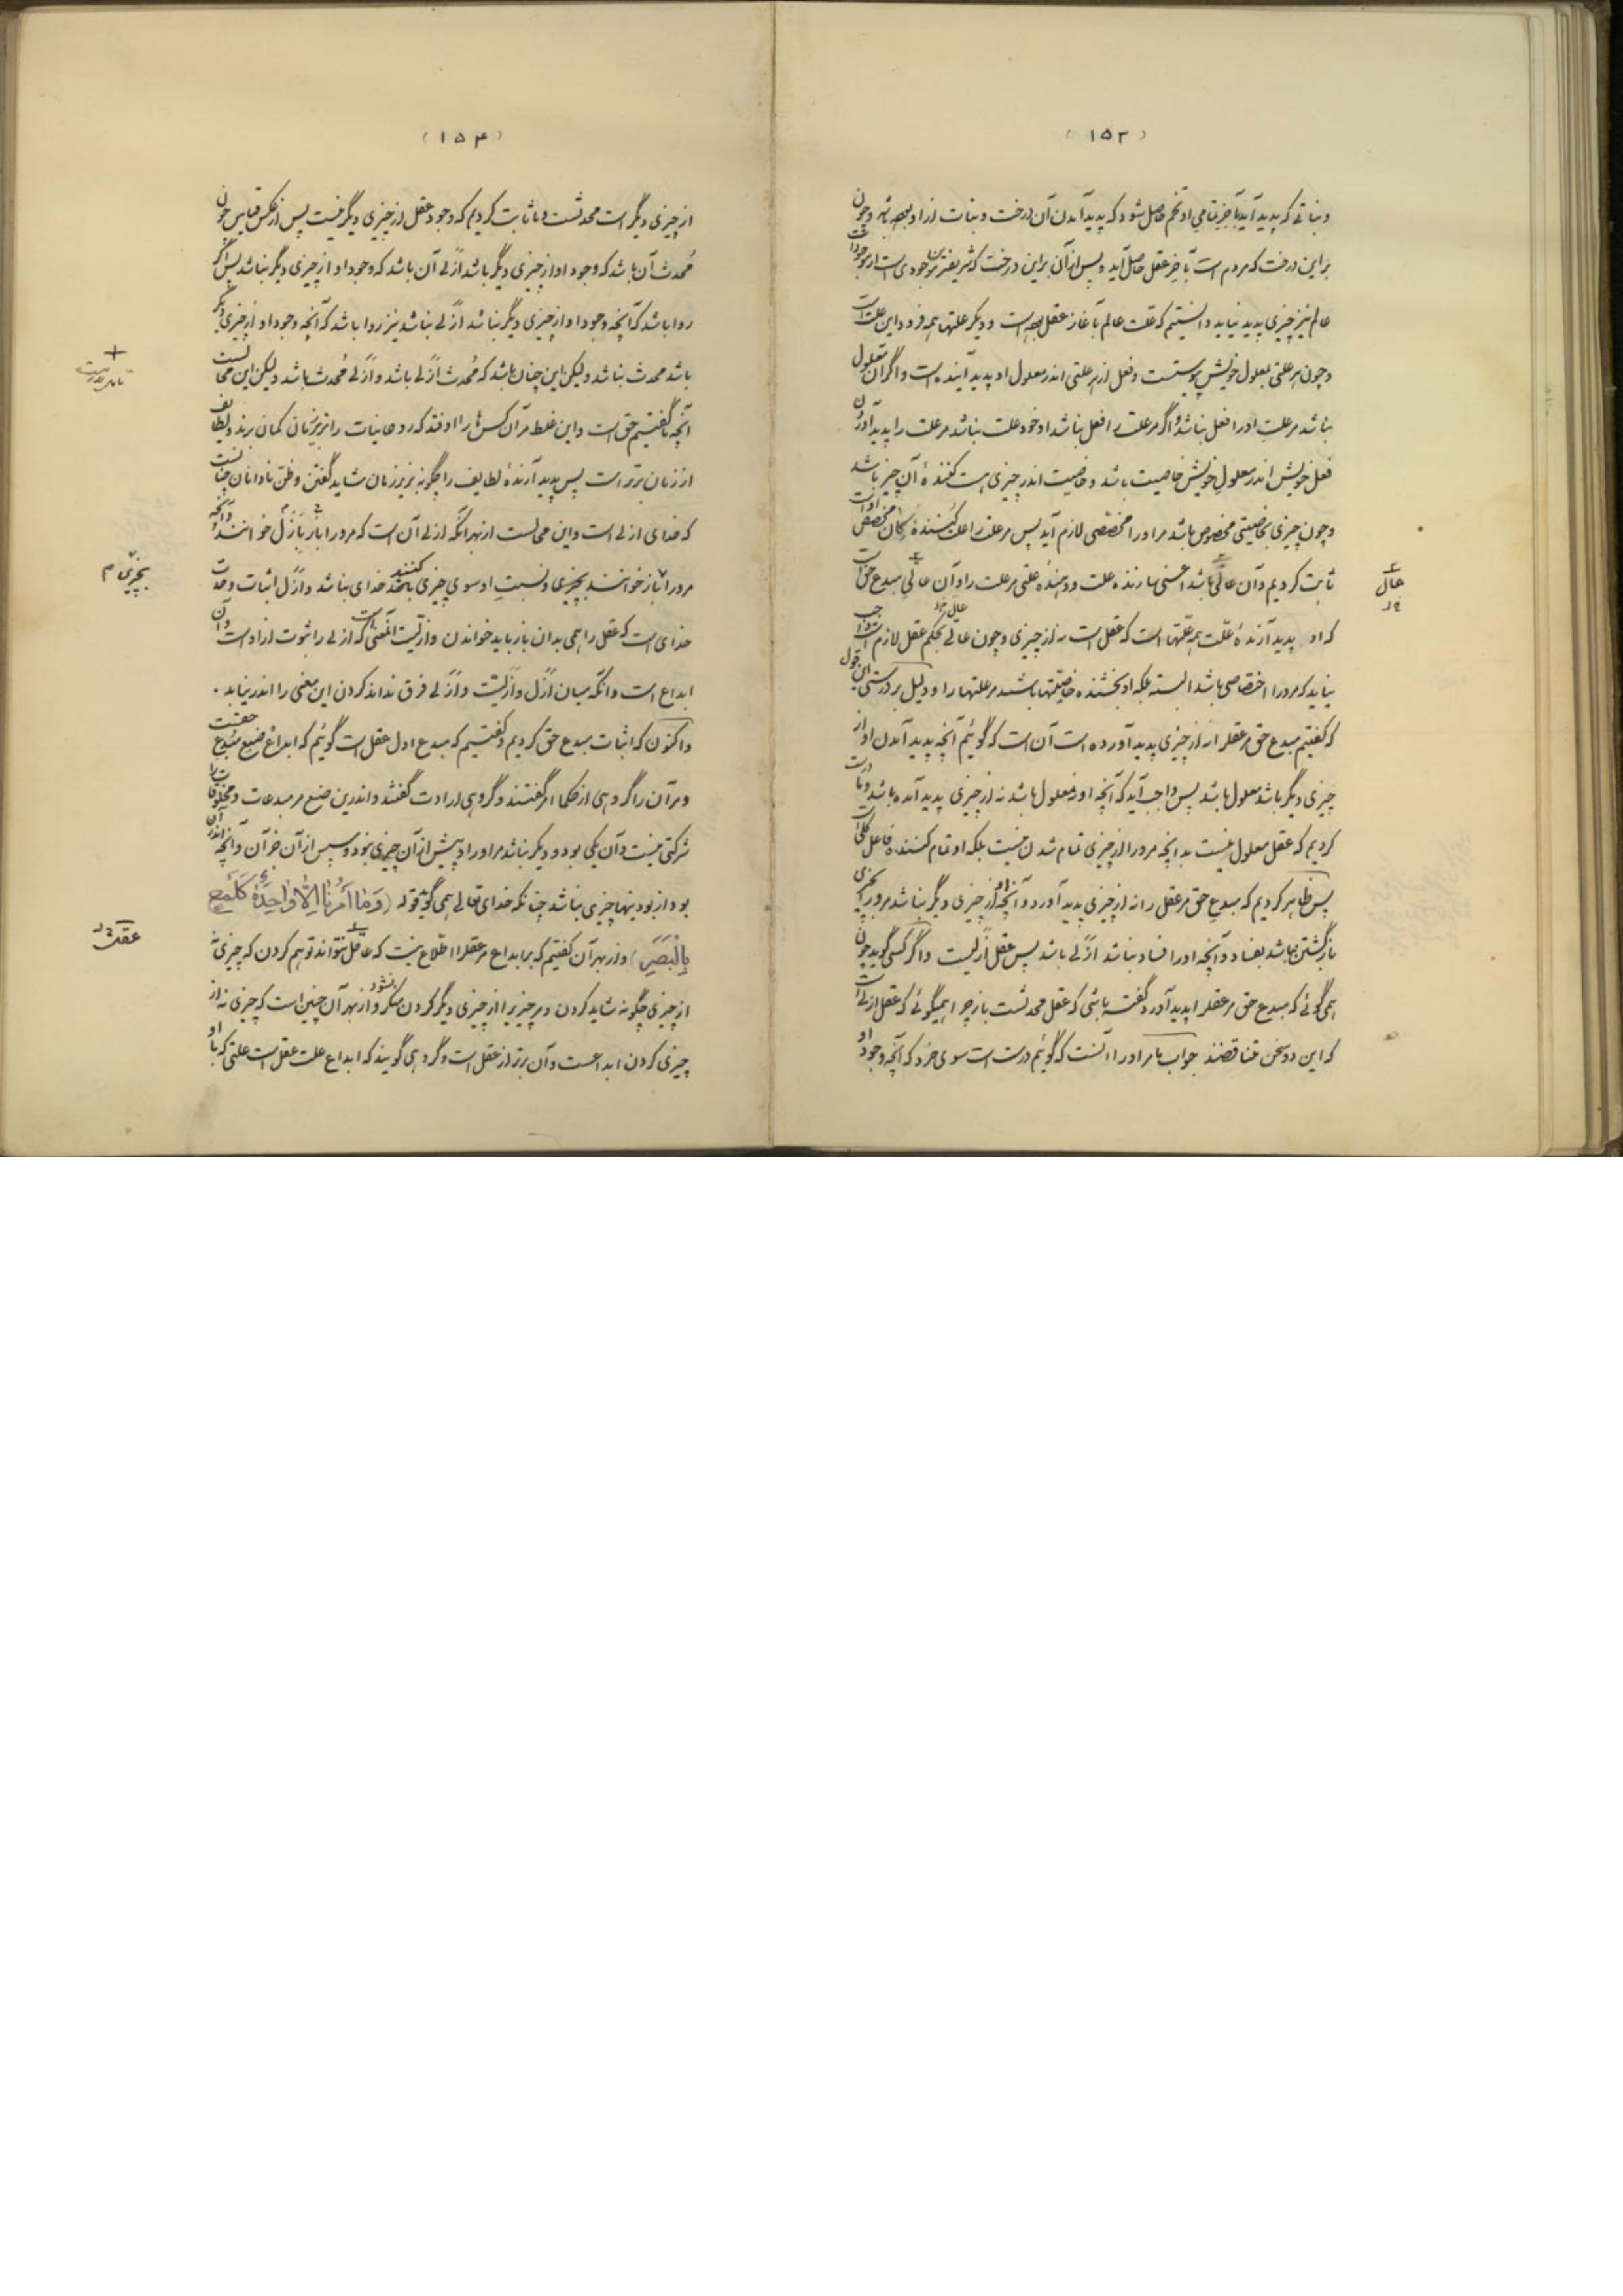 (۱۵۳)
و نباتی که پدید آید بآخر تمامی او تخم حاصل شود که پدید آمدن آن درخت و نبات از او بوده باشد و چون
بر این درخت که مردم است بآخر عقل حاصل آید و پس از آن بر این درخت که شریفترین موجودی است از موجودات
عالم نیز چیزی پدید نیاید دانستیم که علت عالم بآغاز عقل بوده است و دیگر علتها همه فرود این علت است
و چون هر علتی بمعلول خویش پیوستست و فعل از هر علتی اندر معلول او پدید آینده است و اگر آن معلول
نباشد مر علت او را فعل نباشد و اگر مر علت را فعل نباشد او خود علت نباشد مر علت را پدید آوردن
فعل خویش اندر معلول خویش خاصیت باشد و خاصیت اندر چیزی است کننده آن چیز باشد
و چون چیزی بخاصیتی مخصوص باشد مر او را مخصصی لازم آید پس مر علت را علت کننده کان مخصص اوست
ثابت کردیم و آن عالی باشد اعنی سازنده علت و دهنده علتی مر علت را و آن عالی مبدع حق است
که او پدید آرنده علت همه علتها است که عقل است نه از چیزی و چون عالی بحکم عقل لازم است واجب
نیاید که مر او را اختصاصی باشد البته بلکه او بخشنده خاصیتها باشد مر علتها را و دلیل بر درستی این قول
که گفتیم مبدع حق مر عقل را نه از چیزی پدید آورده است آن است که گوئیم آنچه پدید آمدن او از
چیزی دیگر باشد معلول باشد پس واجب آید که آنچه او نه معلول باشد نه از چیزی پدید آمده باشد و ما درست
کردیم که عقل معلول نیست بدانچه مر او را از چیزی تمام شدن نیست بلکه او تمام کننده فاعل کلی است
پس ظاهر کردیم که مبدع حق مر عقل را نه از چیزی پدید آورد و آنچه او از چیزی دیگر نباشد مر او را بچیزی
بازگشتن نباشد بفساد و آنچه او را فساد نباشد ازلی باشد پس عقل ازلیست و اگر کسی گوید چون
همی گوئی که مبدع حق مر عقل را پدید آورد گفته باشی که عقل محدثست باز چرا همیگوئی که عقل ازلی است
که این دو سخن متناقضند جواب ما مر او را آنست که گوئیم درست است سوی خرد که آنچه وجود او
عالی
خ‌د
(۱۵۴)
از چیزی دیگر است محدثست و ما ثابت کردیم که وجود عقل از چیزی دیگر نیست پس از عکس قیاس چون
محدث آن باشد که وجود او از چیزی دیگر باشد ازلی آن باشد که وجود او از چیزی دیگر نباشد پس اگر
روا باشد که آنچه وجود او از چیزی دیگر نباشد ازلی نباشد نیز روا باشد که آنچه وجود او از چیزی دیگر
باشد محدث نباشد ولیکن این چنان باشد که محدث ازلی باشد و ازلی محدث باشد ولیکن این محالست
آنچه ما گفتیم حق است و این غلط مر آن کس‌ها را اوفتد که روحانیات را بزیر زمان گمان برند و لطایف
از زمان برتر است پس پدید آرنده لطایف را چگونه بزیر زمان شاید گفتن و ظن نادانان چنانست
که خدای ازلی است و این محالست از بهر انکه ازلی آن است که مر او را باز بازل خوانند و آنچه
مر او را باز خوانند بچیزی و نسبت او سوی چیزی کنند خدای نباشد و ازل اثبات وحدت
خدای است که عقل را همی بدان باز باید خواندن و ازلیت آنمعنی است که ازلی را ثبوت از او است و آن
ابداع است و انکه میان ازل و ازلیت و ازلی فرق نداند کردن این معنی را اندر نیابد.
و اکنون که اثبات مبدع حق کردیم و گفتیم که مبدع اول عقل است گوئیم که ابداع صنع مبدع حقست
و مر آن را گروهی از حکما امر گفتند و گروهی ارادت گفتند و اندرین صنع مر مبدعات و مخلوقات را
شرکتی نیست و آن یکی بود و دیگر نباشد مر او را و پیش از آن چیزی نبود و سپس از آن جز آن و آنچه اندر آن
بود از بودنیها چیزی نباشد چنانکه خدای تعالی همی گوید قوله (وَمَا أَمْرُنَا إِلَّا وَاحِدَةٌ كَلَمْحٍ
بِالْبَصَرِ) و از بهر آن گفتیم که بر ابداع مر عقل را اطلاع نیست که عاقل نتواند توهم کردن که چیزی نه
از چیزی چگونه شاید کردن و مر چیزی را از چیزی دیگر کردن منکر نشود و از بهر آن چنین است که چیزی نه از
چیزی کردن ابداعست و آن برتر از عقل است و گروهی گویند که ابداع علت عقل است علتی که با او
بچیزی م
عقل خ‌د